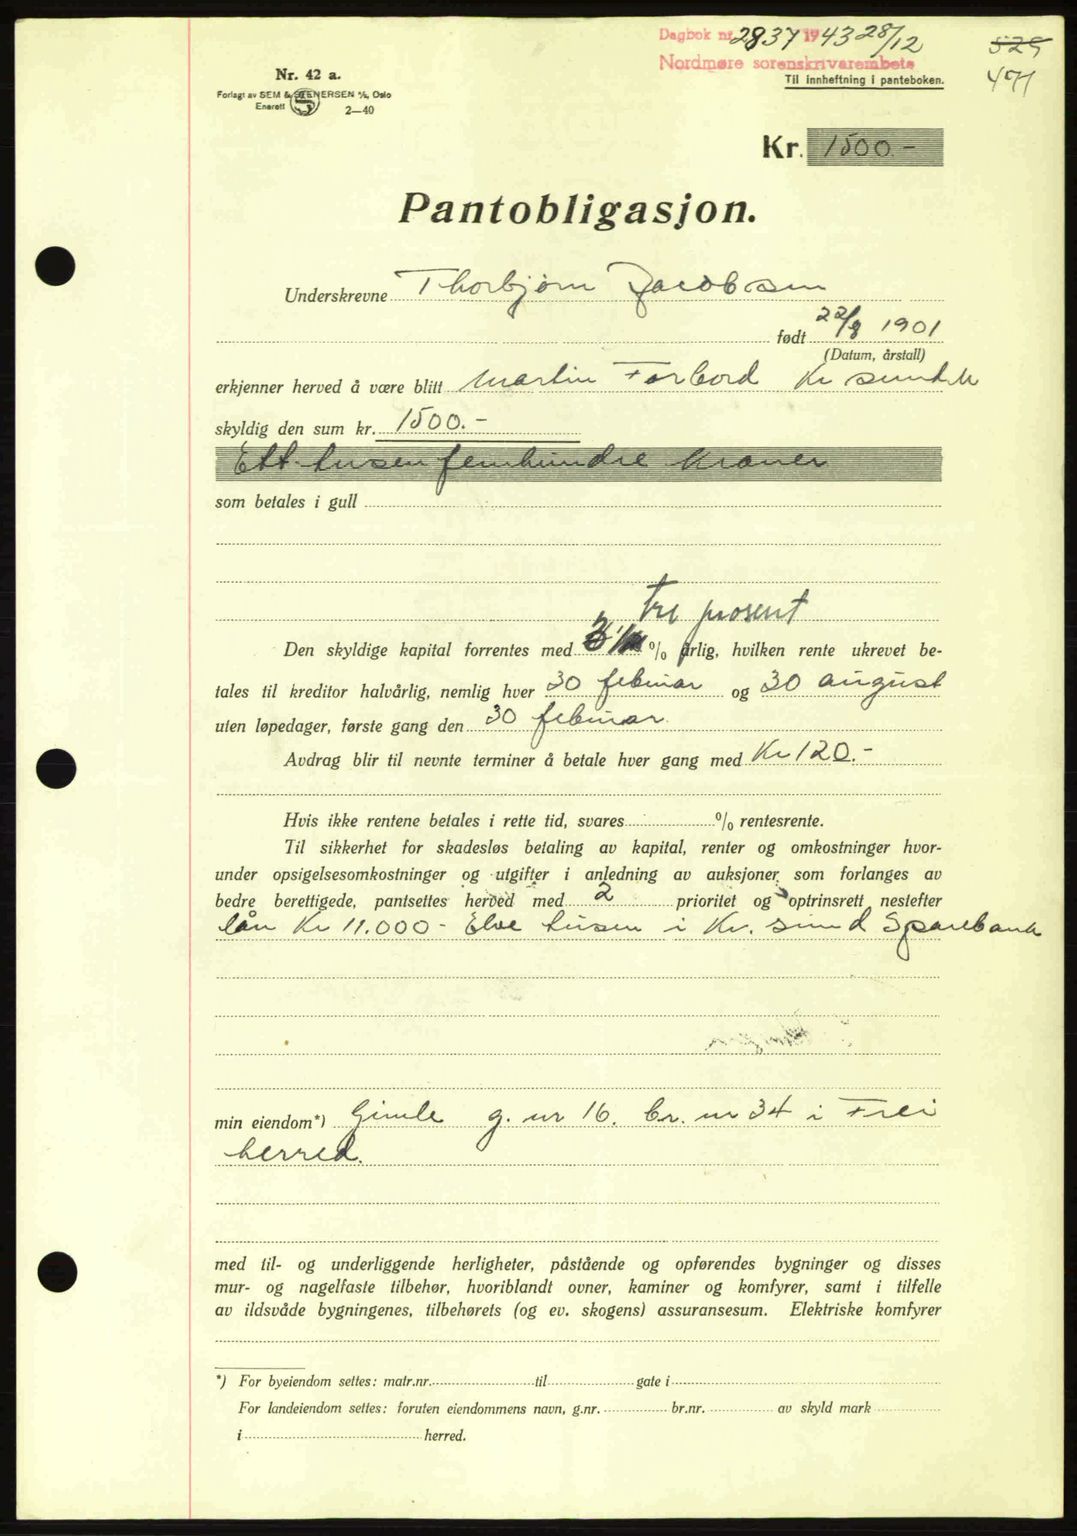 Dagbok nr. 2837 1943 28/12
Nordmøre sorenskrivarembete
Til innheftning i panteboken.
529
471
Nr. 42 a.
Forlagt av SEM & STENERSEN A/S, Oslo
Enerett S 2—40
Kr. 1500.-
Pantobligasjon.
Underskrevne Thorbjørn Jacobsen
født 22/8 1901
(Datum, årstall)
erkjenner herved å være blitt Martin Forbord Kr sund N
skyldig den sum kr. 1500.-
Ett tusen femhundre kroner
som betales i gull
tre prosent
Den skyldige kapital forrentes med 3 % årlig, hvilken rente ukrevet be-
tales til kreditor halvårlig, nemlig hver 30 februar og 30 august
uten løpedager, første gang den 30 februar.
Avdrag blir til nevnte terminer å betale hver gang med Kr 120.-
Hvis ikke rentene betales i rette tid, svares % rentesrente.
Til sikkerhet for skadesløs betaling av kapital, renter og omkostninger hvor-
under opsigelsesomkostninger og utgifter i anledning av auksjoner som forlanges av
bedre berettigede, pantsettes herved med 2 prioritet og optrinsrett nestefter
lån Kr 11.000- Elve tusen i Kr. sund Sparebank
min eiendom*) Gimle g. nr 16. br. nr 34 i Frei
herred.
med til- og underliggende herligheter, påstående og opførendes bygninger og disses
mur- og nagelfaste tilbehør, hvoriblandt ovner, kaminer og komfyrer, samt i tilfelle
av ildsvåde bygningenes, tilbehørets (og ev. skogens) assuransesum. Elektriske komfyrer
*) For byeiendom settes: matr.nr. til gate i
For landeiendom settes: foruten eiendommens navn, g.nr. br.nr. av skyld mark
i herred.